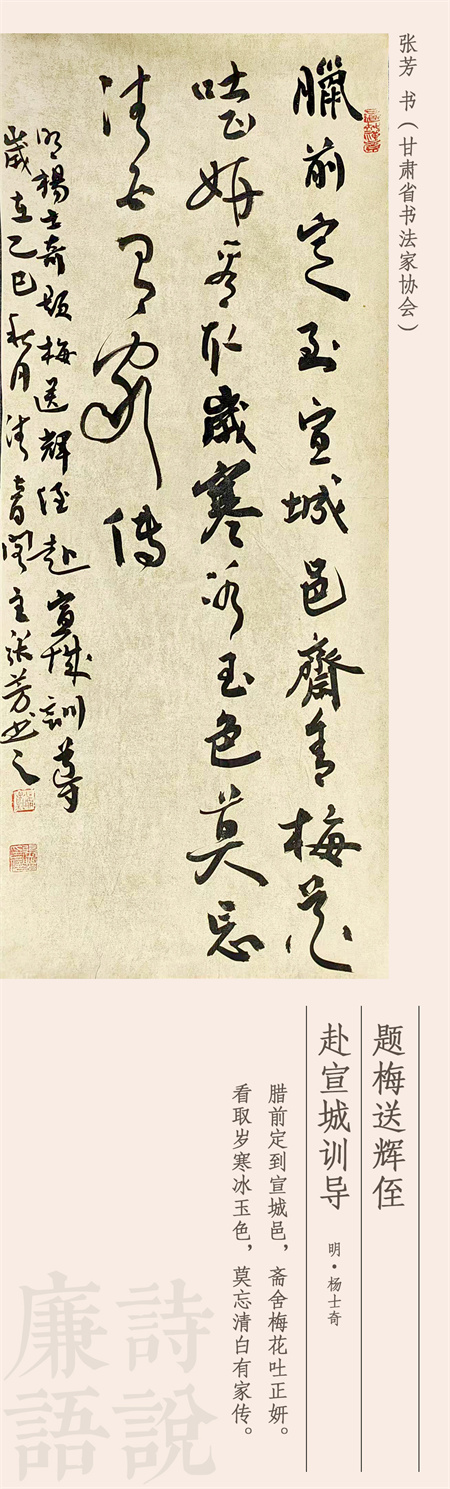 张芳 书（甘肃省书法家协会）
臘前定到宣城邑齋舍梅花
吐正妍看取歲寒冰玉色莫忘
清白有家傳
明楊士奇題梅送輝侄赴宣城訓導
歲在乙巳秋月清音閣主張芳書之
题梅送辉侄
赴宣城训导
明·杨士奇
腊前定到宣城邑，斋舍梅花吐正妍。
看取岁寒冰玉色，莫忘清白有家传。
詩說
廉語